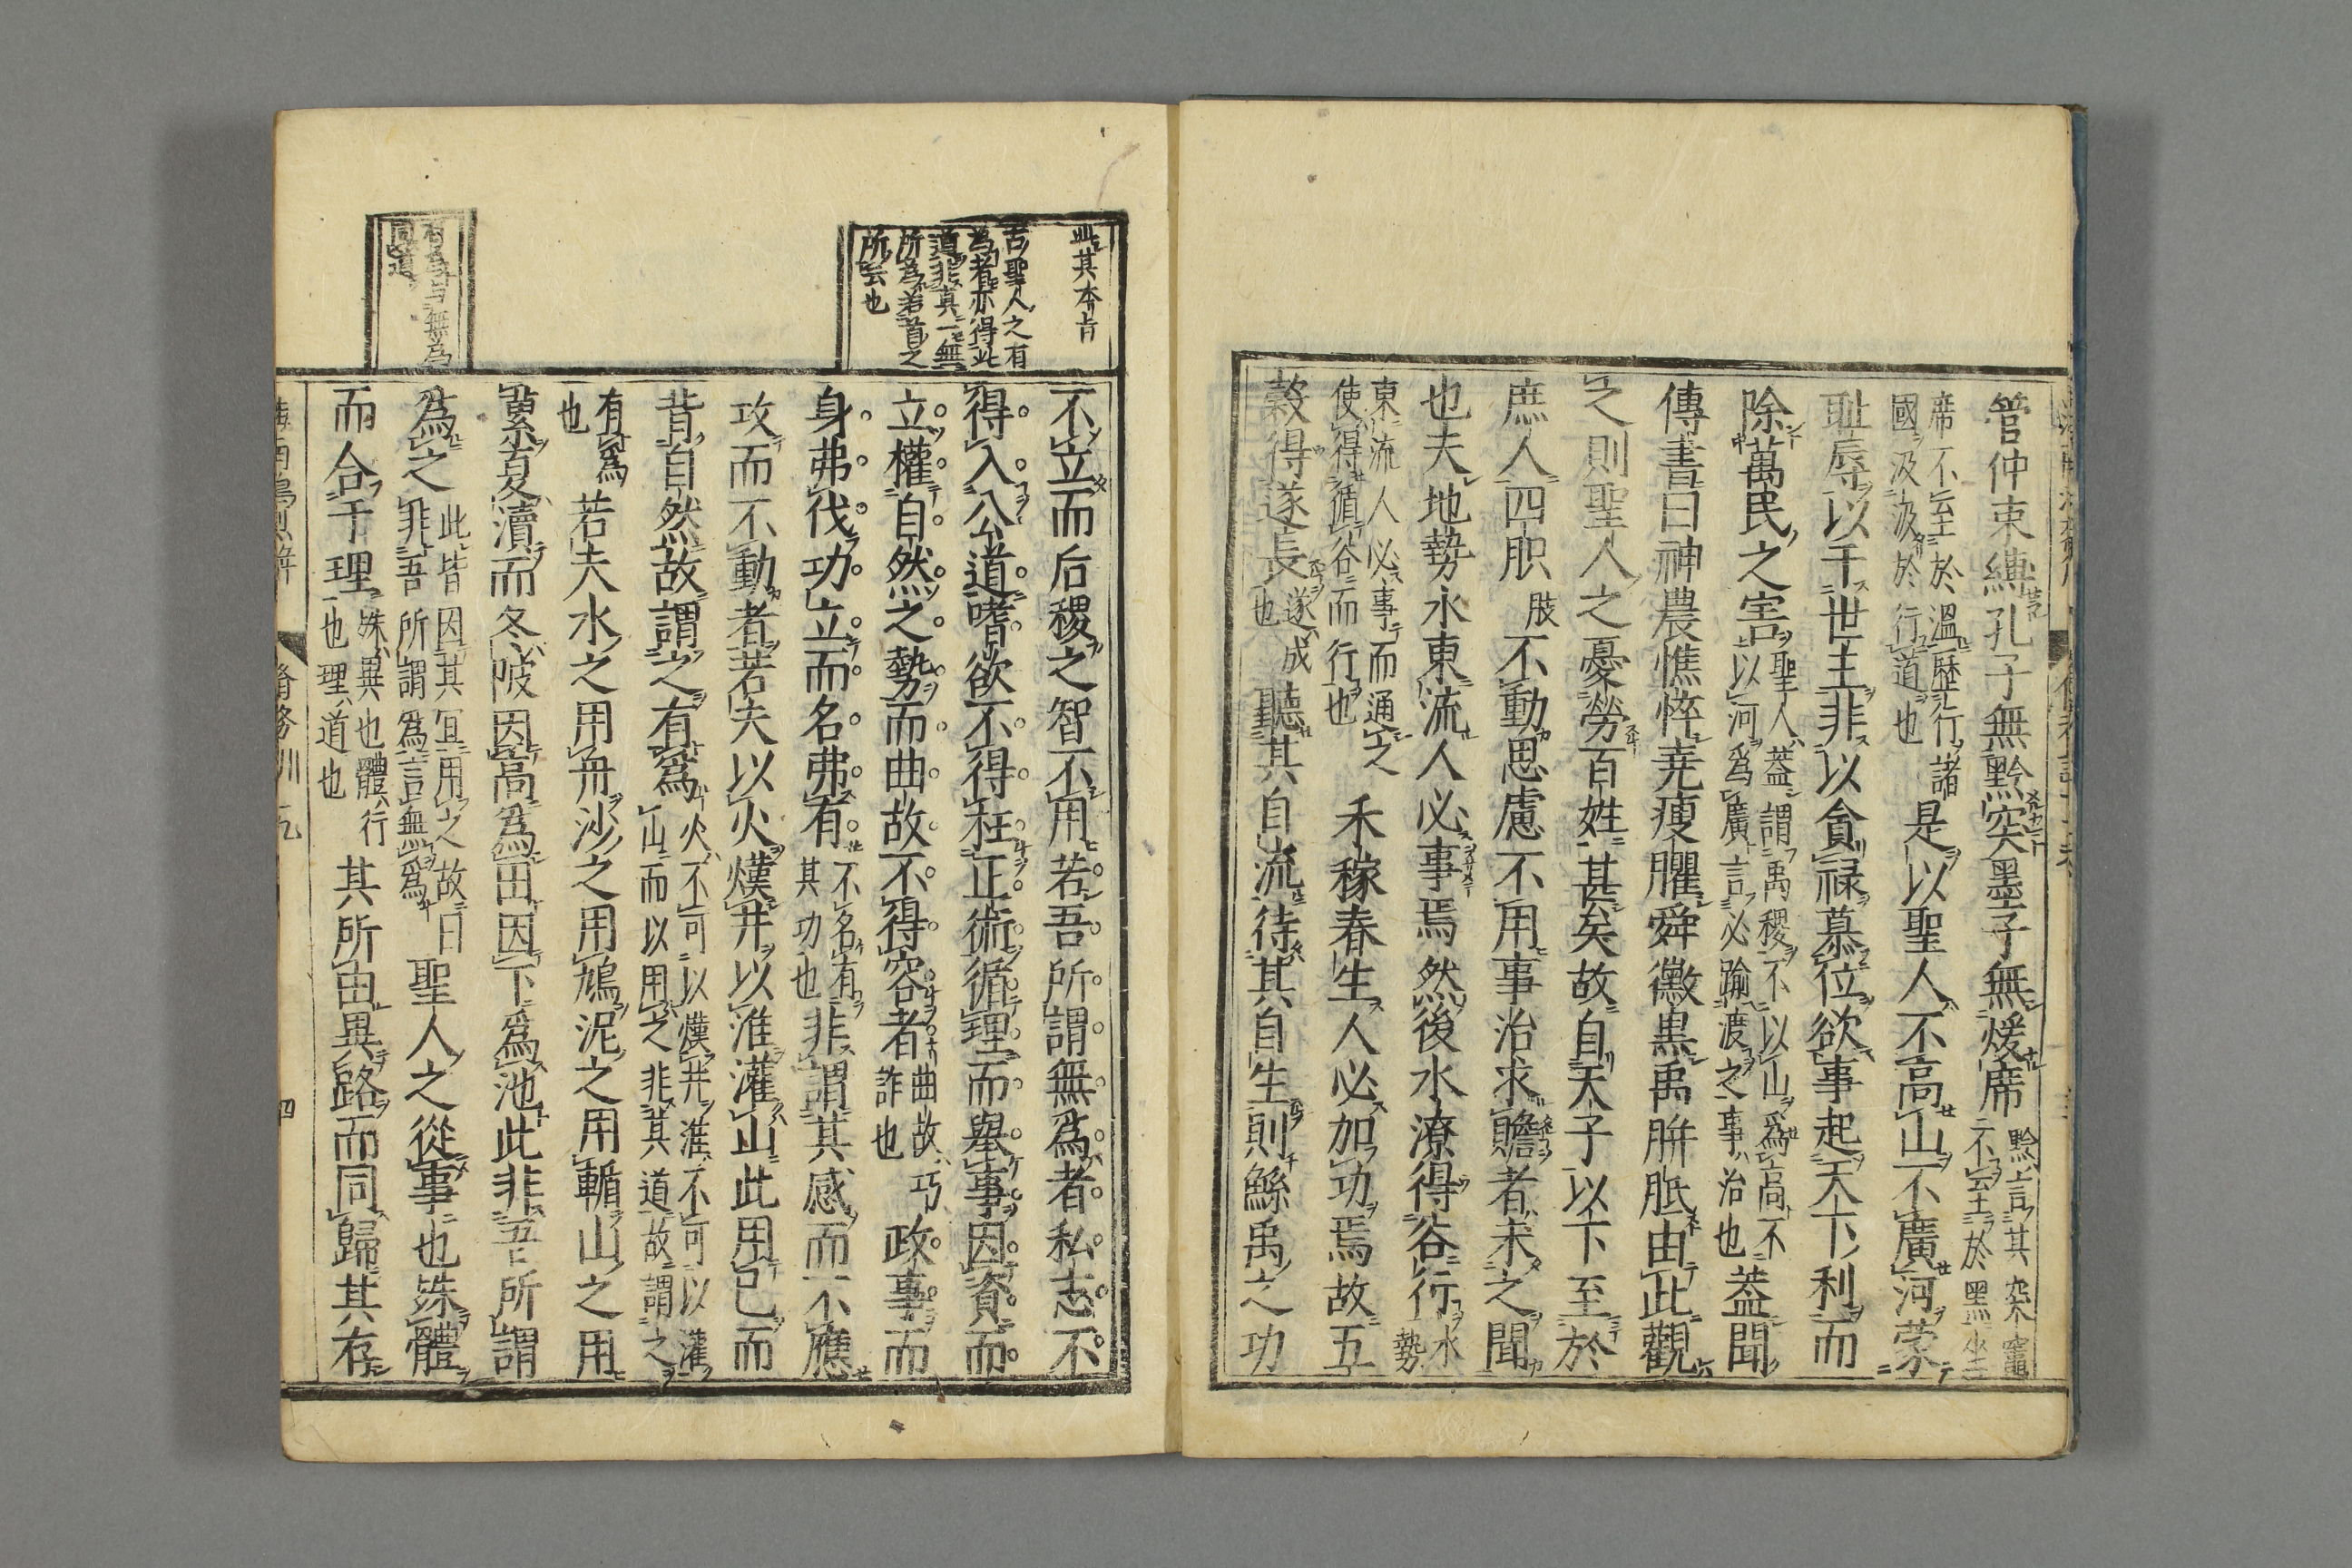 管仲束縛孔子無黔突墨子無煖席黔言其突竈不至於黑坐
席不至於溫歷行諸國汲汲於行道也是以聖人不高山不廣河蒙
耻辱以干世主非以貪祿慕位欲事起天下利而
除萬民之害聖人蓋謂禹稷不以山爲高不以河爲廣言必踰渡之事治也蓋聞
傳書曰神農憔悴堯瘦臞舜黴黒禹胼胝由此觀
之則聖人之憂勞百姓甚矣故自天子以下至於
庶人四胑肢不動思慮不用事治求贍者未之聞
也夫地勢水東流人必事焉然後水潦得谷行水勢
東流人必事而通之使得循谷而行也禾稼春生人必加功焉故五
穀得遂長遂成也聽其自流待其自生則鯀禹之功
不立而后稷之智不用若吾所謂無爲者私志不
得入公道嗜欲不得枉正術循理而舉事因資而
立權自然之勢而曲故不得容者曲故巧詐也政事而
身弗伐功立而名弗有不名有其功也非謂其感而不應
攻而不動者若夫以火熯井以淮灌山此用已而
背自然故謂之有爲火不可以熯井淮不可以灌山而以用之非其道故謂之
有爲也若夫水之用舟沙之用鳩泥之用輴山之用
蔂夏瀆而冬陂因高爲田因下爲池此非吾所謂
爲之此皆因其宜用之故曰非吾所謂爲言無爲聖人之從事也殊體
而合于理殊異也體行也理道也其所由異路而同歸其存
此其本旨
言聖人之有
爲者亦得此
道非真一無
所爲若首之
所云也
有爲与無爲
同道
脩務訓 九
四